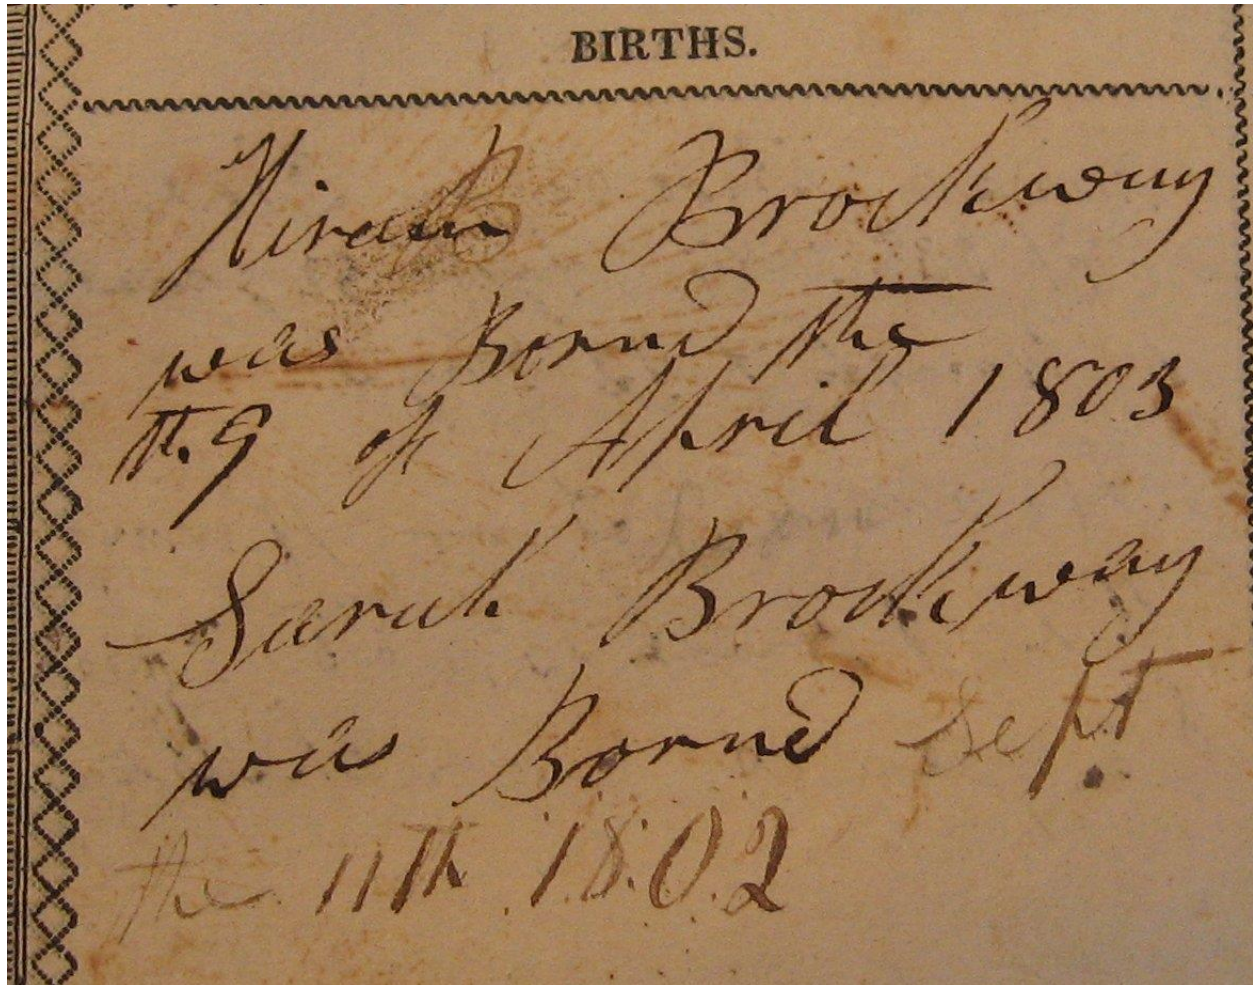 BIRTHS.
Hiram Brockway
was Bornd the
th. 9 of April 1803
Sarah Brockway
was Borned Sept
the 11th 1802